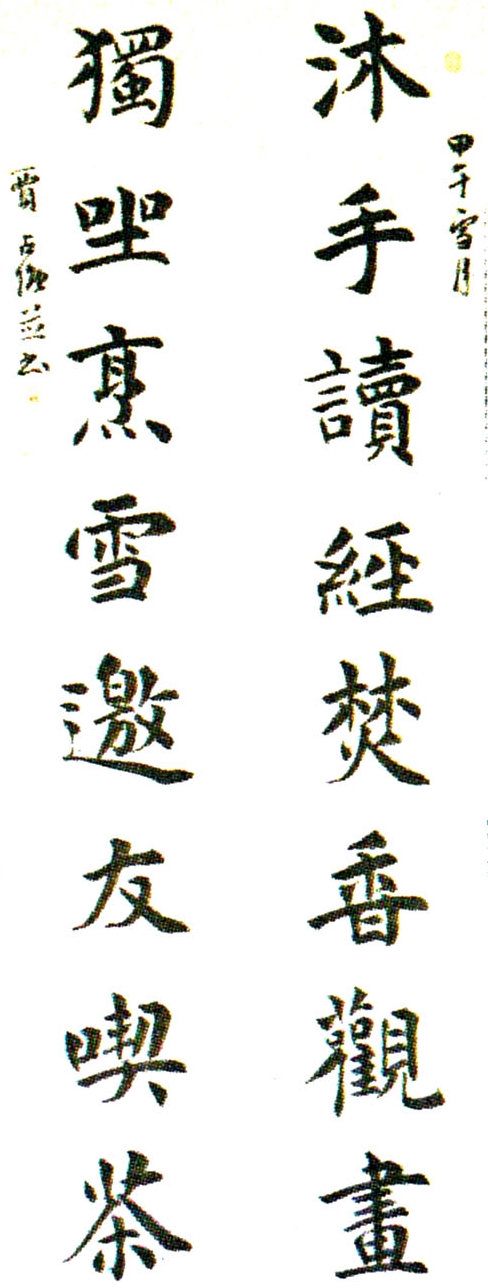 甲午雪月
沐手讀經焚香觀畫
獨坐烹雪邀友喫茶
賈占並书